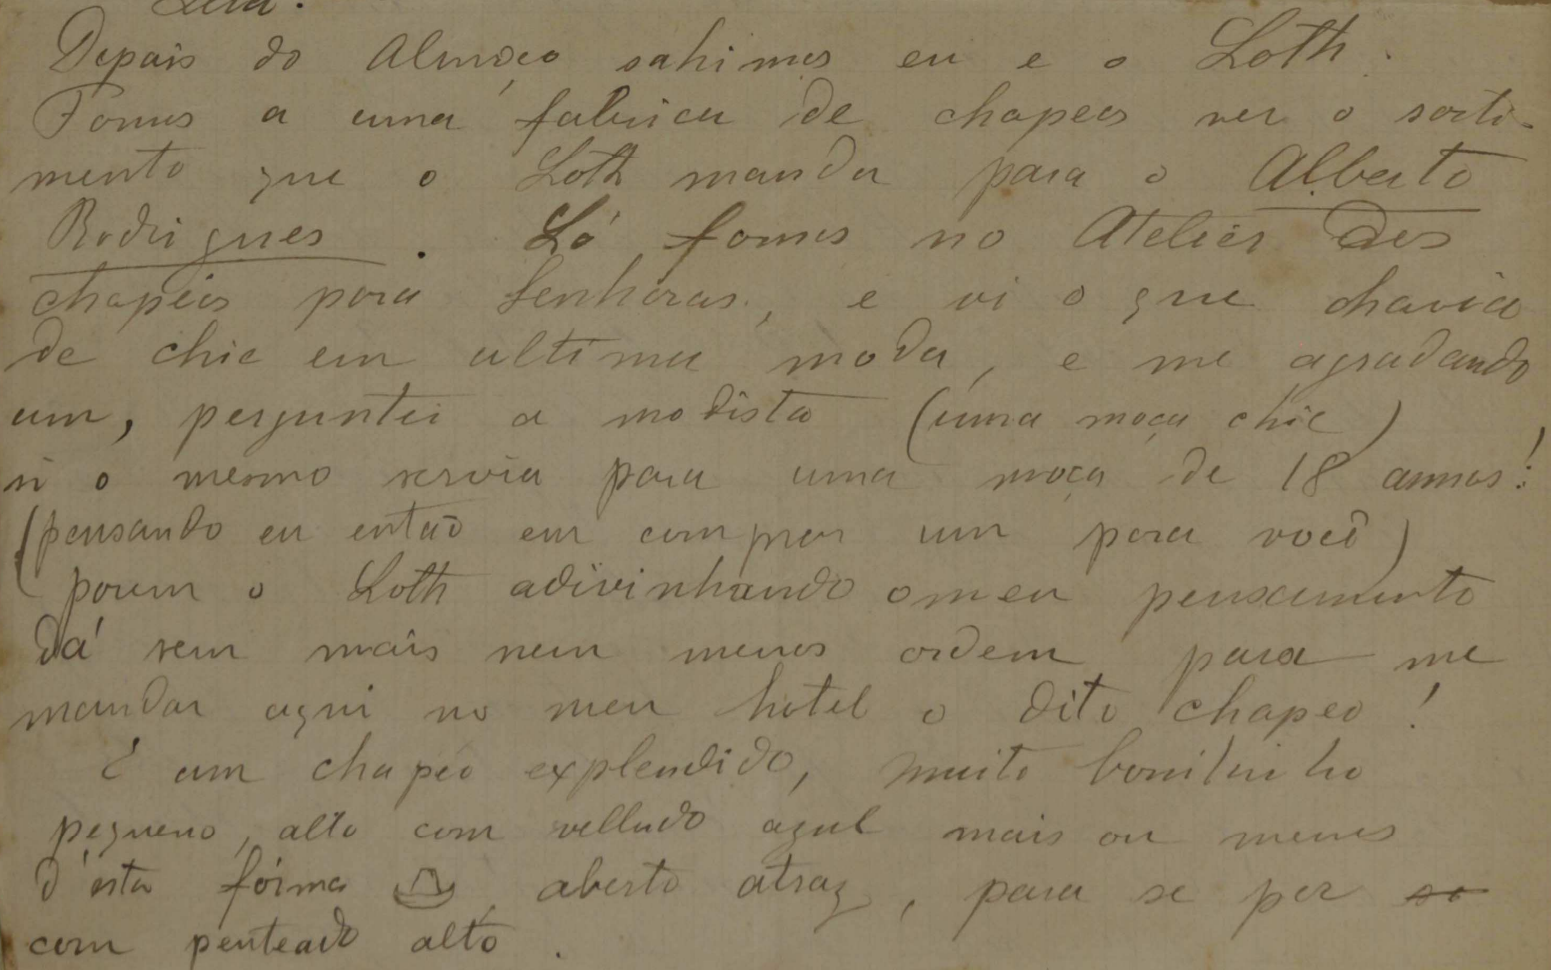 Depois do Almoço sahimos eu e o Loth.
Fomos a uma fabrica de chapeos ver o sorti-
mento que o Loth manda para o Alberto
Rodrigues. Lá fomos no Atelier des
chapéos para Senhoras, e vi o que havia
de chic em ultima moda, e me agradando
um, perguntei a modista (uma moça chic)
si o mesmo servia para uma moça de 18 annos!
(pensando eu então em comprar um para você)
porem o Loth adivinhando o meu pensamento
dá sem mais nem menos ordem para me
mandar aqui no meu hotel o dito chapeo!
É um chapéo explendido, muito bonitinho
pequeno, alto com velludo azul mais ou menos
d'esta fórma aberto atraz, para se por so
com penteado alto.